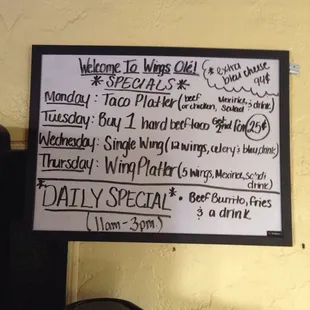 Welcome To Wings Olé!
*SPECIALS*
*extra
bleu cheese
94¢
Monday: Taco Platter (beef or chicken, Mexirice, salad & drink)
Tuesday: Buy 1 hard beef taco Get 2nd for 25¢
Wednesday: Single Wing (12 wings, celery & bleu, drink)
Thursday: Wing Platter (5 wings, Mexirice, salad & drink)
*DAILY SPECIAL*
(11am-3pm)
• Beef Burrito, fries
& a drink